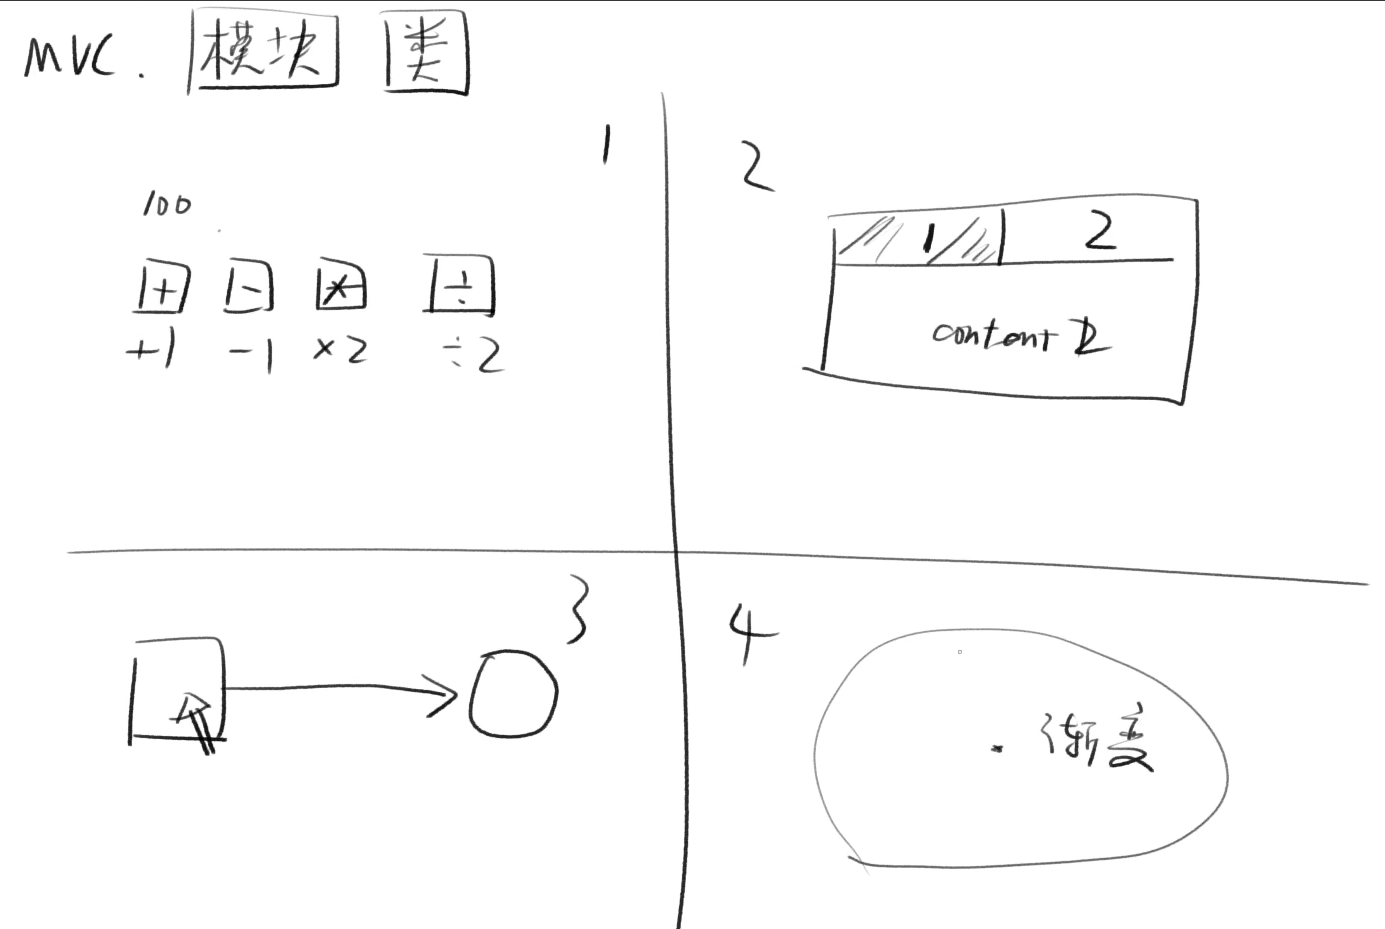 MVC. 模块 类
1
100
+ - × ÷
+1 -1 ×2 ÷2
2
1 2
content 2
3
4
渐变